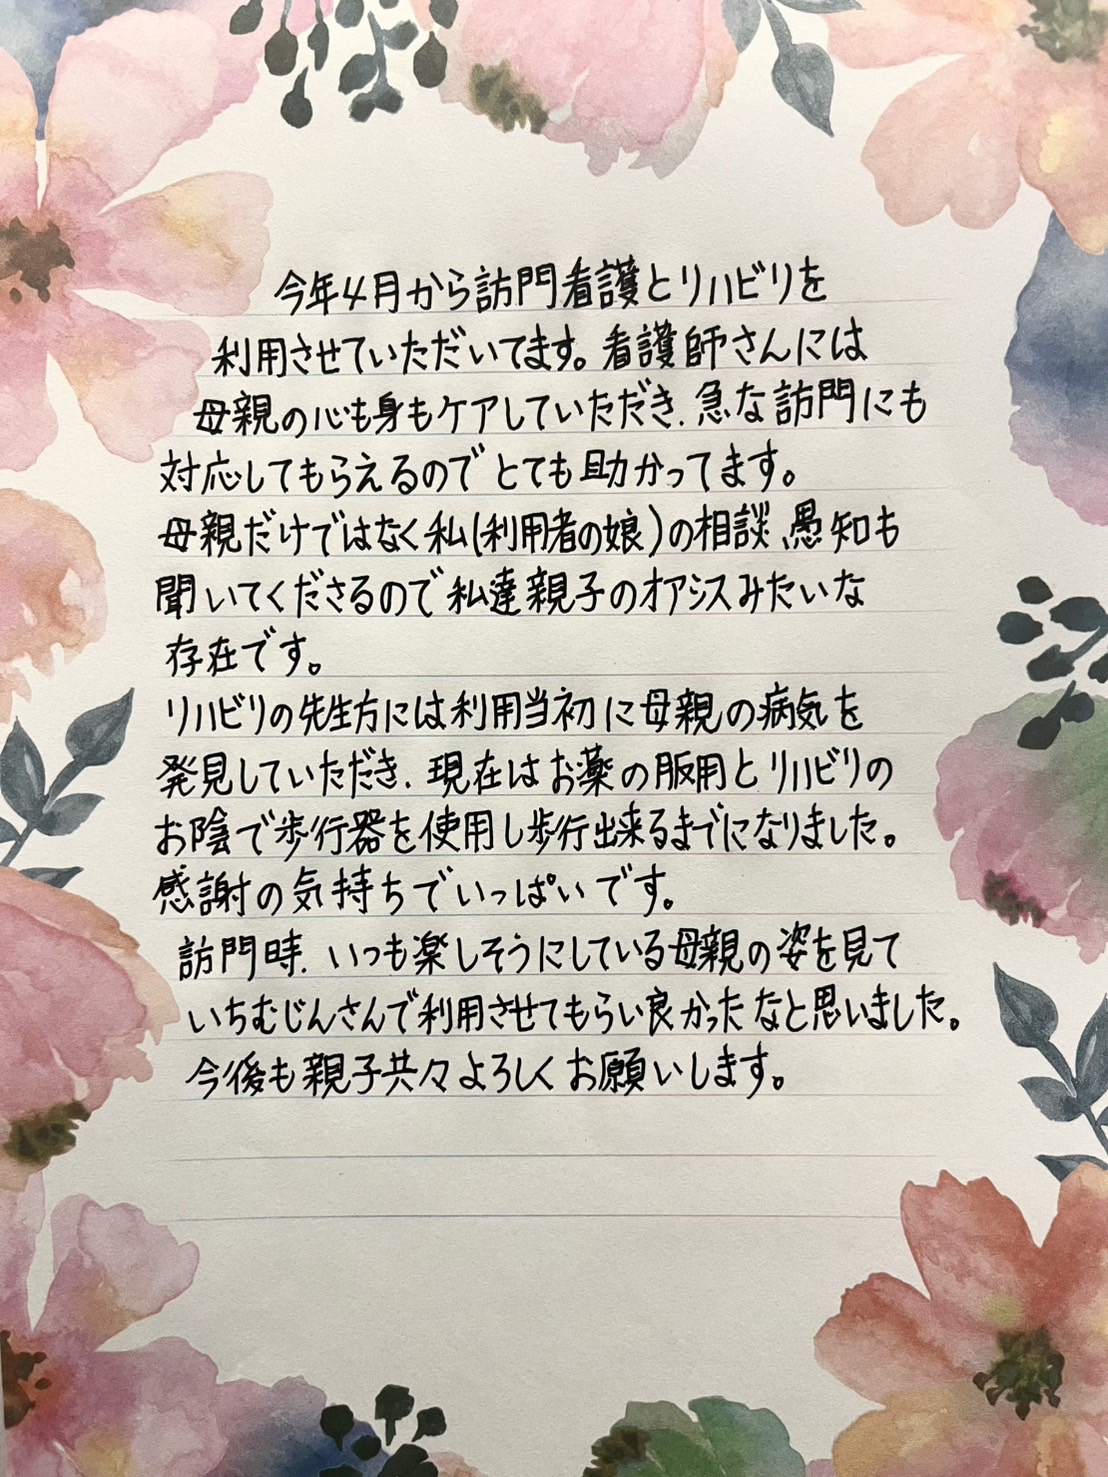 今年4月から訪門看護とリハビリを
利用させていただいてます。看護師さんには
母親の心も身もケアしていただき、急な訪門にも
対応してもらえるのでとても助かってます。
母親だけではなく私(利用者の娘)の相談、愚知も
聞いてくださるので私達親子のオアシスみたいな
存在です。
リハビリの先生方には利用当初に母親の病気を
発見していただき、現在はお薬の服用とリハビリの
お陰で歩行器を使用し歩行出来るまでになりました。
感謝の気持ちでいっぱいです。
訪門時、いつも楽しそうにしている母親の姿を見て
いちむじんさんで利用させてもらい良かったなと思いました。
今後も親子共々よろしくお願いします。